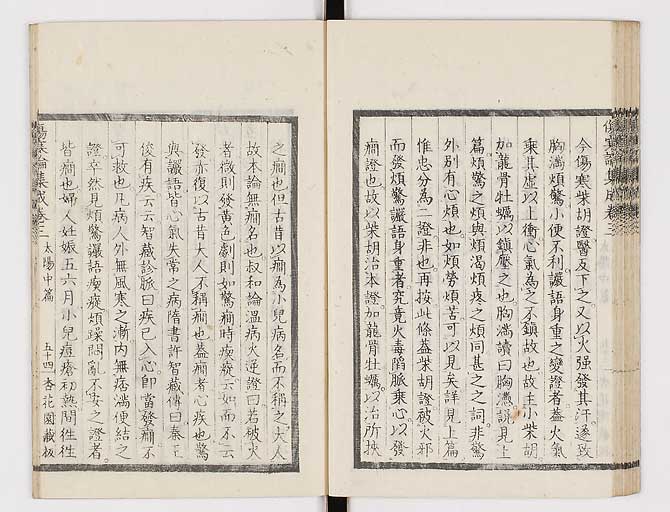 今傷寒柴胡證醫反下之又以火强發其汗遂致
胸滿煩驚小便不利讝語身重之變證者蓋火氣
乘其虛以上衝心氣為之不鎮故也故主小柴胡
加龍骨牡蠣以鎮壓之也胸滿讀曰胸懣說見上
篇煩驚之煩與煩渴煩疼之煩同甚之之詞非驚
外別有心煩也如煩勞煩苦可以見矣詳見上篇
惟忠分為二證非也再按此條蓋柴胡證被火邪
而發煩驚讝語身重者究竟火毒陷脈乘心以發
癇證也故以柴胡治本證加龍骨牡蠣以治所挾
傷寒論集成卷三
之癇也但古昔以癇為小兒病名而不稱之大人
故本論無癇名也叔和論溫病火逆證曰若被火
者微則發黃色劇則如驚癇時瘈瘲云如而不云
發亦復以古昔大人不稱癇也蓋癇者心疾也驚
與讝語皆心氣失常之病隋書許智藏傳曰秦王
俊有疾云云智藏診脈曰疾已入心即當發癇不
可救也凡病人外無風寒之漸內無痞滿便結之
證卒然見煩驚讝語瘈瘲煩躁悶亂不安之證者
皆癇也婦人妊娠五六月小兒痘瘡初熱間往往
傷寒論集成卷三 太陽中篇 五十四 杏花園藏板